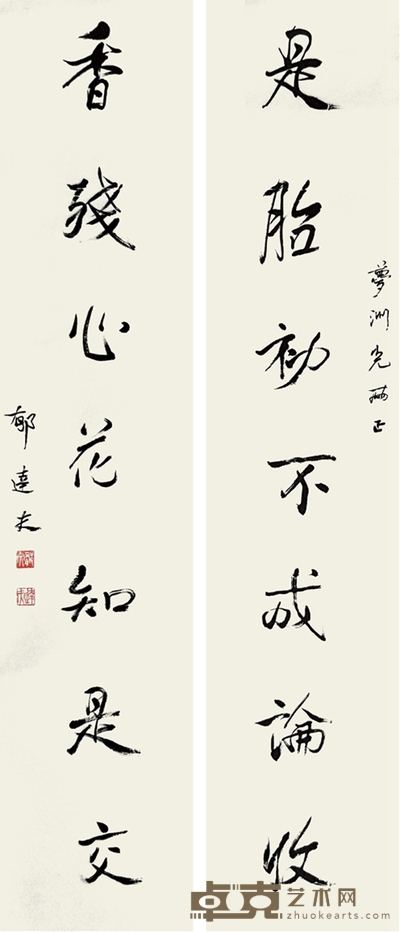 夢洲兄正
是胎初不成論收
香殘心花知是交
郁達夫
卓克艺术网
zhuokearts.com